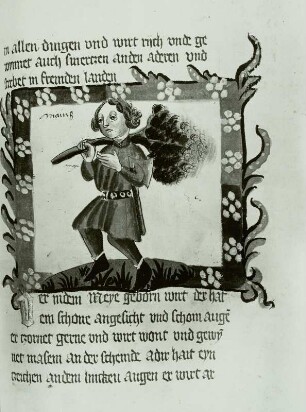 in allen dingen vnd wirt rich vnde ge
winnet auch smertzen an den aderen vnd
stirbet in fremden landen
maius
er in dem Meye geborn wirt der hat
ein schone angesicht vnd schon aug
er zornet gerne vnd wirt wont vnd gewy
net masem an der scheinde adir hait eyn
zeichen an dem lincken augen er wirt ar